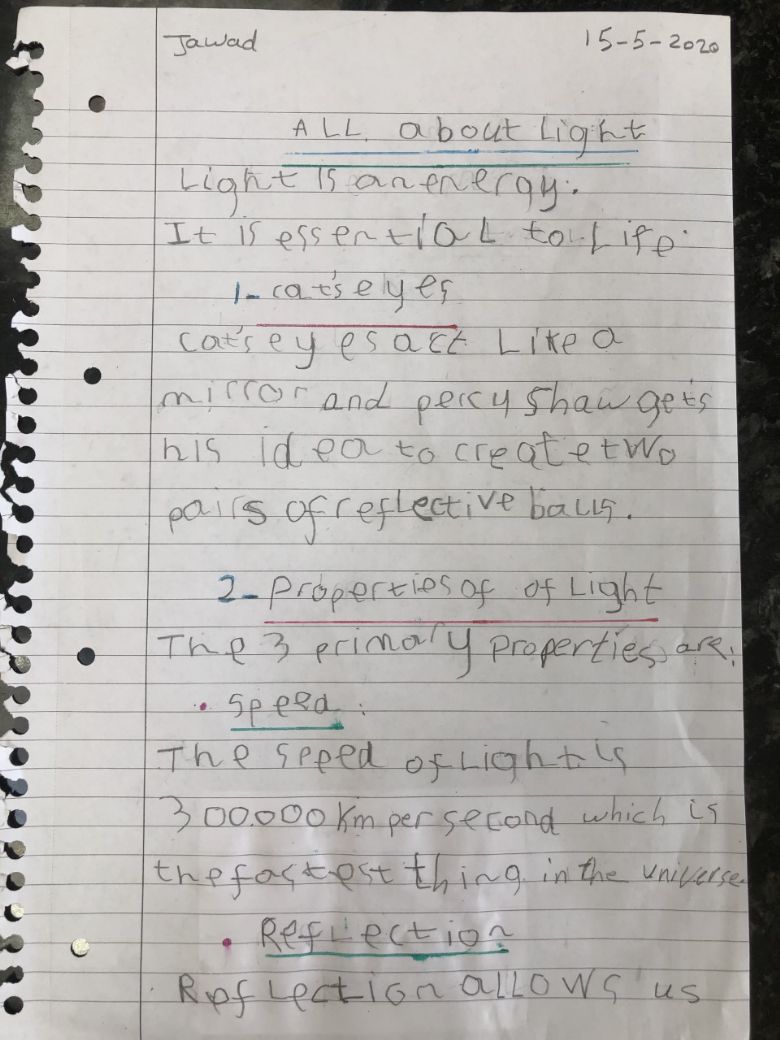 Jawad 15-5-2020
ALL about Light
Light is an energy.
It is essential to Life.
1- cat's eyes
cat's eyes act Like a
mirror and percy shaw gets
his idea to create two
pairs of reflective balls.
2- Properties of of Light
The 3 primary properties are:
• Speed:
The speed of Light is
300.000 km per second which is
the fastest thing in the universe
• Reflection
Reflection allows us